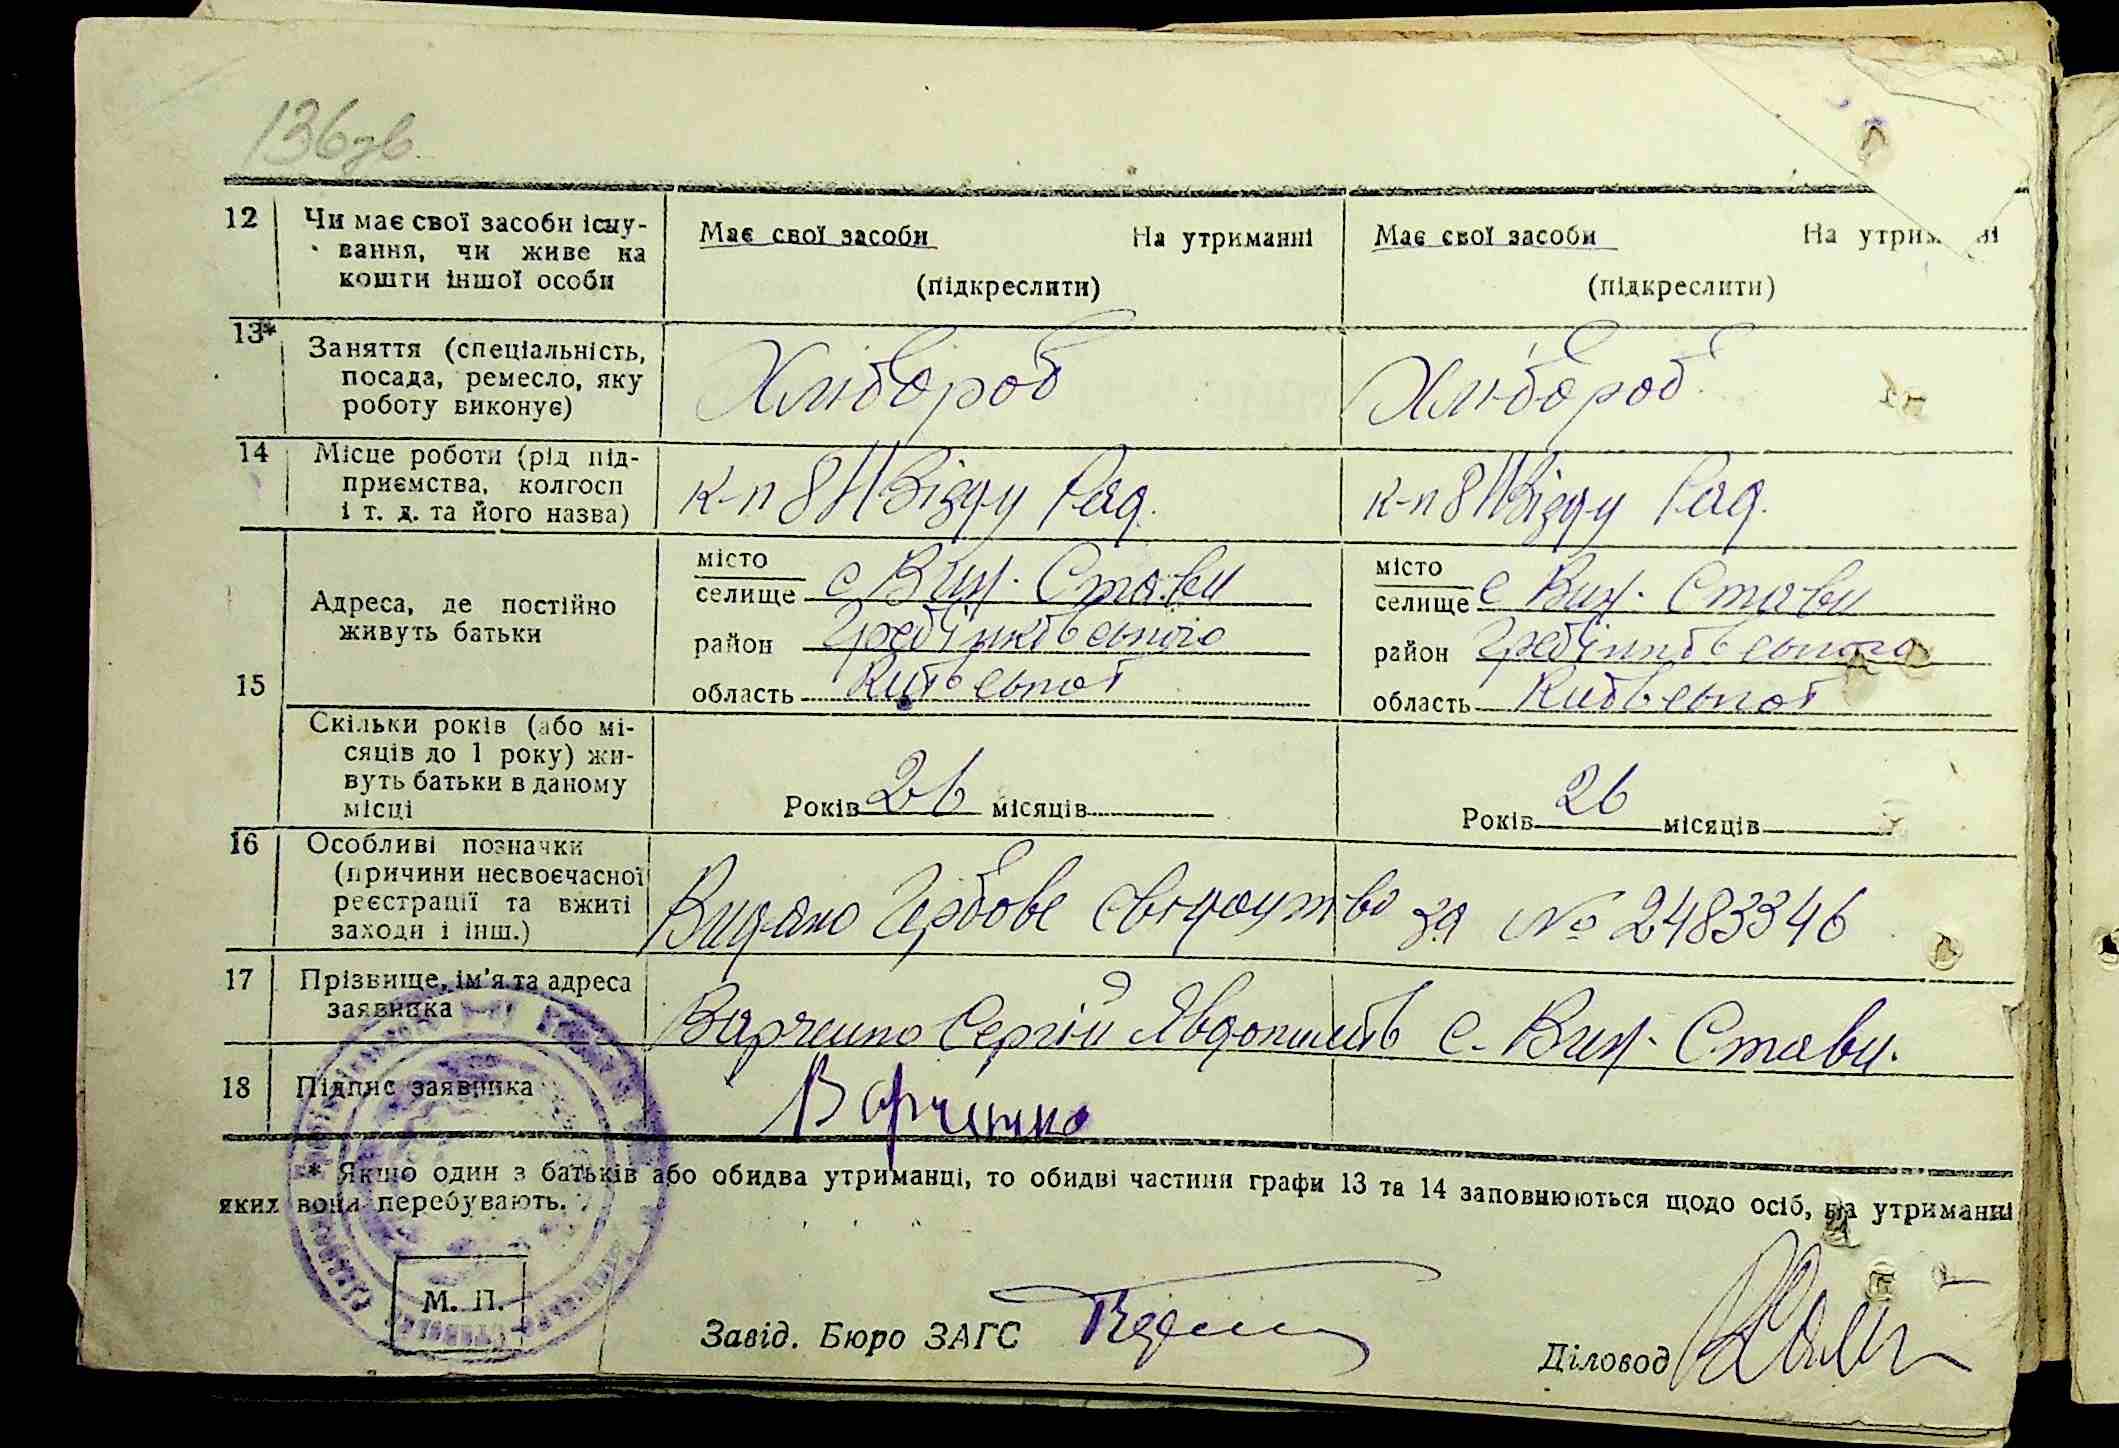 136зв
12 Чи має свої засоби існу- Має свої засоби На утриманні Має свої засоби На утрим ні
вання, чи живе на
кошти іншої особи (підкреслити) (підкреслити)
13* Заняття (спеціальність, Хлібороб Хлібороб
посада, ремесло, яку
роботу виконує)
14 Місце роботи (рід під- к-п 8 Зїзду Рад. к-п 8 Зїзду Рад.
приємства, колгосп
і т. д. та його назва)
15 Адреса, де постійно
живуть батьки
місто
селище с Вин. Стави
район Гребінківського
область Київської
місто
селище с Вин. Стави
район Гребінківського
область Київської
Скільки років (або мі-
сяців до 1 року) жи-
вуть батьки в даному
місці
Років 26 місяців
Років 26 місяців
16 Особливі позначки
(причини несвоєчасної
реєстрації та вжиті
заходи і інш.)
Видано Гербове свідоцтво за № 2483346
17 Прізвище, ім'я та адреса
заявника
Варченко Сергій с. Вин. Стави.
18 Підпис заявника Варченко
* Якщо один з батьків або обидва утриманці, то обидві частини графи 13 та 14 заповнюються щодо осіб, на утриманні
яких вони перебувають.
М. П.
Завід. Бюро ЗАГС
Діловод